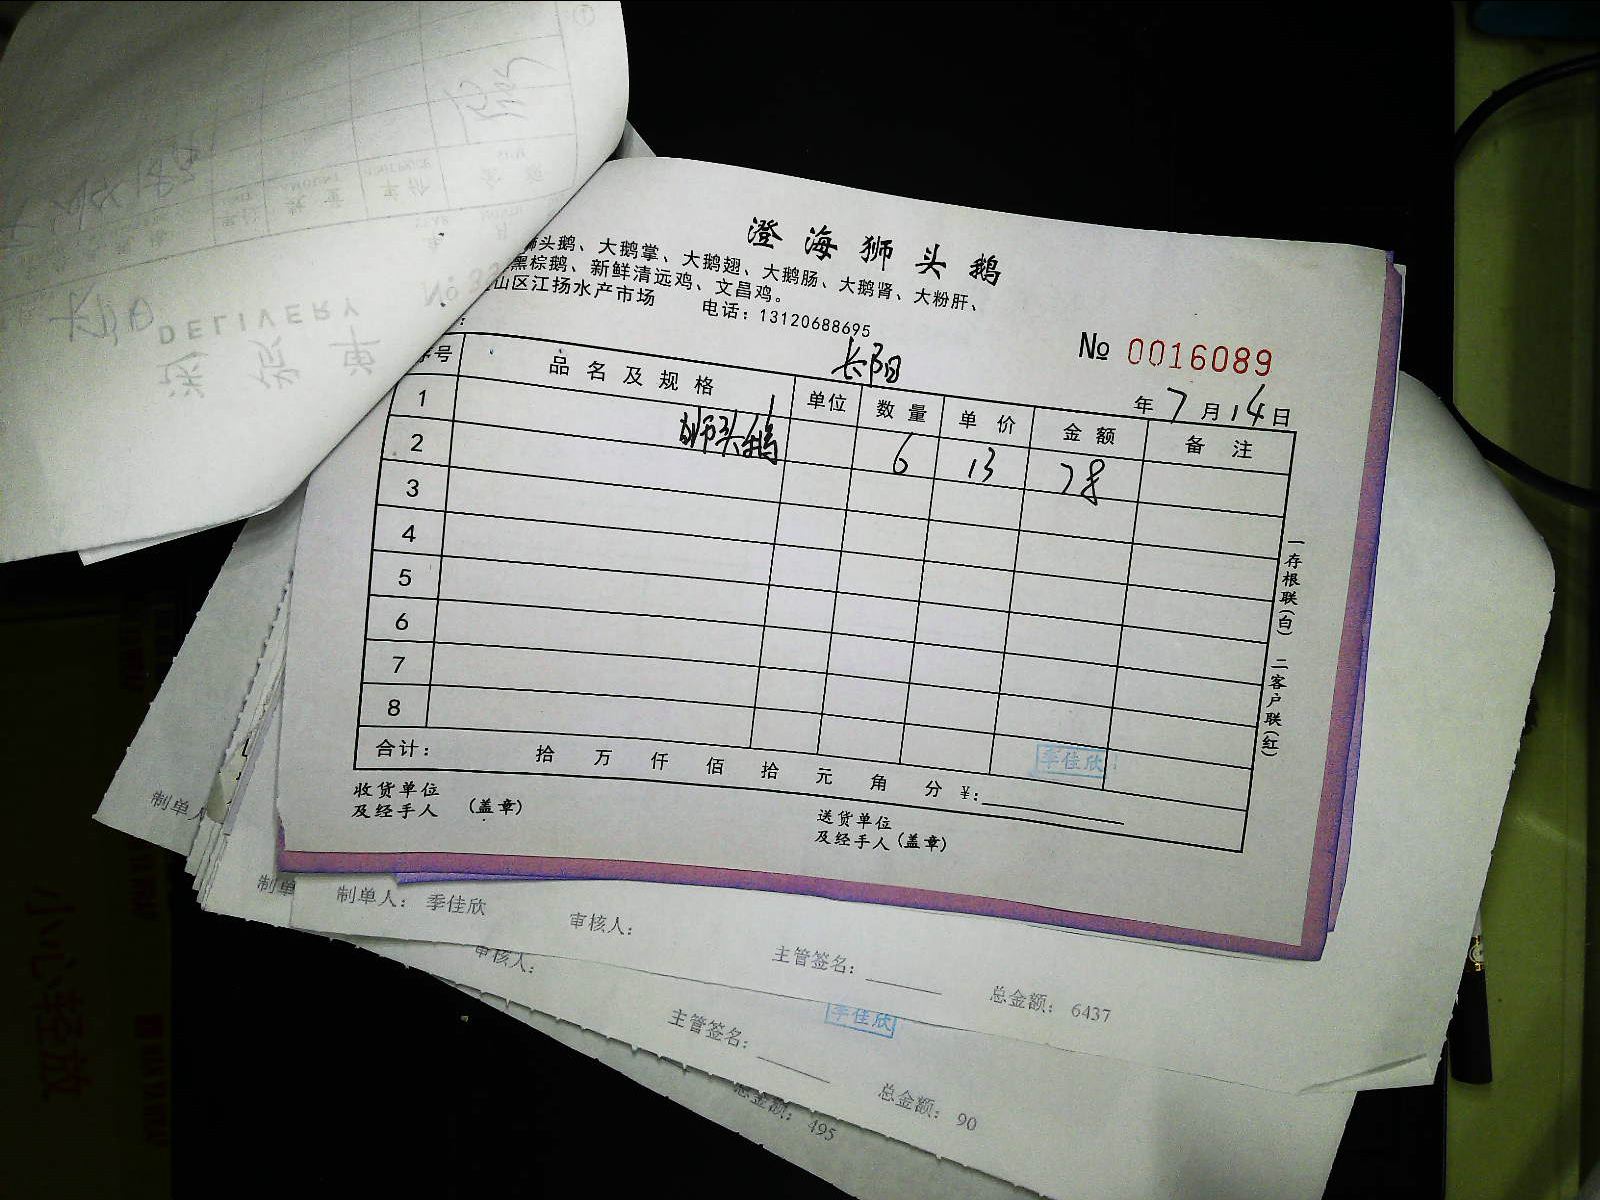 澄海狮头鹅
狮头鹅、大鹅掌、大鹅翅、大鹅肠、大鹅肾、大粉肝、
黑棕鹅、新鲜清远鸡、文昌鸡。
山区江扬水产市场 电话：13120688695
No 0016089
长阳
年 7 月 14 日
序号 品名及规格 单位 数量 单价 金额 备注
1 狮头鹅 6 13 78
2
3
4
5
6
7
8
合计： 拾 万 仟 佰 拾 元 角 分 ¥：
季佳欣
收货单位
及经手人 （盖章）
送货单位
及经手人（盖章）
一存根联（白） 二客户联（红）
送货单
DELIVERY
No
制单人
制单
制单人： 季佳欣 审核人： 主管签名： 总金额： 6437
审核人： 主管签名： 总金额： 90
季佳欣
总金额： 495
小心轻放